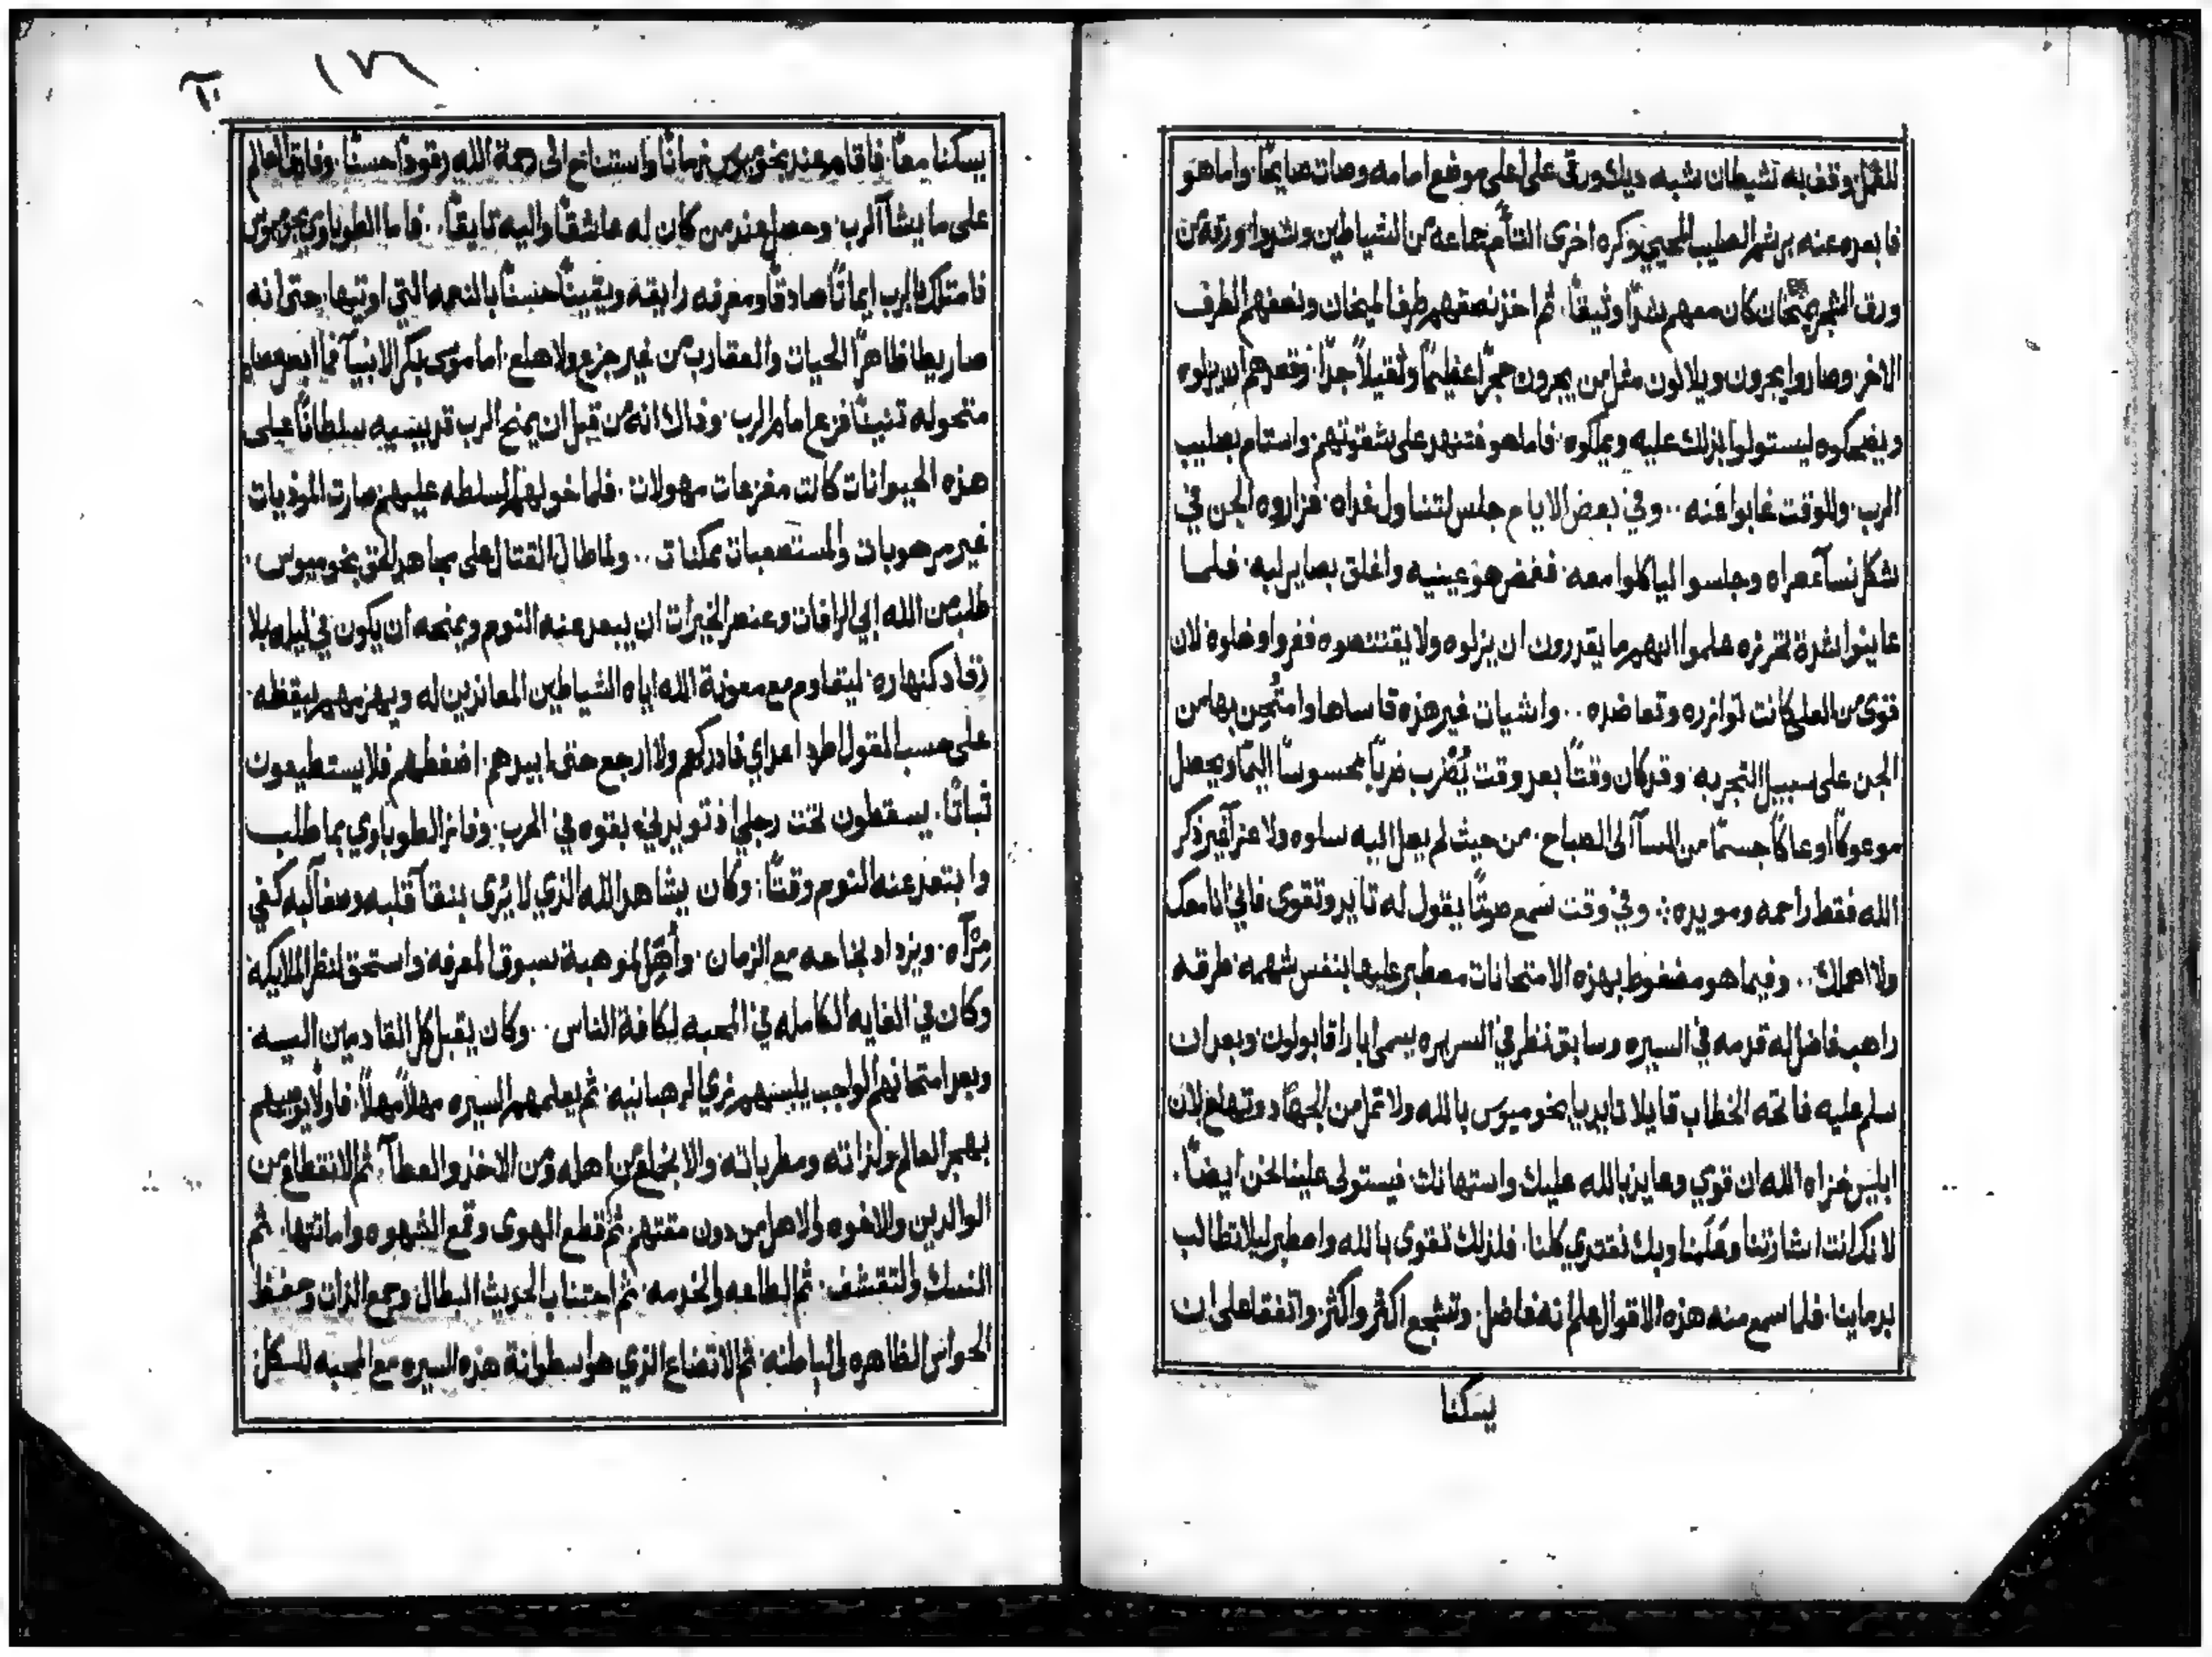 للعمل وقف به شيطان شبه ديك ورقى على اعلى موضع امامه وصات صايحًا. واما هو
فابعده عنه برشم الصليب المحيي وكره اخرى التأم جماعه من الشياطين وشدوا ورقه من
ورق الشجر كان معهم شدًا وثيقًا. ثم اخذ نصفهم طرف الميخان ونصفهم الطرف
الاخر. وصاروا يجرون ويلالون مثل من يجرون حجرًا عظيمًا وثقيلاً جدًا. وقصدهم ان يزلوه
ويضحكوه ليستولوا بذلك عليه ويملكوه. فاما هو فتنهد على شقوتهم. واستام بصليب
الرب. وللوقت غابوا عنه .. وفي بعض الايام جلس لتناول غداه. فزاروه الجن في
شكل نسآ عراه وجلسوا لياكلوا معه. فغمض هو عينيه واغلق بصاير لبه. فلما
عاينوا شدة تحرزه علموا انهم ما يقدرون ان يزلوه ولا يقتنصوه ففروا وخلوه لان
قوى من العلى كانت توازره وتعاضده .. واشيات غير هذه قاساها وامتُحِن بها من
الجن على سبيل التجربه. وقد كان وقتًا بعد وقت يُضرب ضربًا محسوسًا اليمًا ويحصل
موعوكًا اوعاكًا جسمًا من المسآ الى الصباح. من حيث لم يصل اليه سلوه ولا عزآ غير ذكر
الله فقط راحمه ومويده: وفي وقت سمع صوتًا يقول له تايد وتقوى فاني انا معك
ولا اهملك .. وفيما هو مضغوط بهذه الامتحانات مصطبر عليها بنفس شهمه. طرقه
راهب فاضل له قدمه في السيره وسابق نظر في السريره يسمى ابا راقابولون. وبعد ان
سلم عليه فاتحه الخطاب قايلا تايد يا بخوميوس بالله ولا تمل من الجهاد وتهلع لان
ابليس خزاه الله ان قوي وعايذ بالله عليك واستهانك. فيستولى علينا نحن ايضًا.
لانك انت اشارتنا وعَلَمنا وبك نقتدي كلنا. فلذلك تقوى بالله واصطبر ليلا تطالب
بدماينا. فلما سمع منه هذه الاقوال علم انه فاضل. وتشجع اكثر واكثر. واتفقا على ان
يسكنا
١٧٦
يسكنا معًا. فاقام عند بخوميوس زمانًا واستناح الى رحمة الله رقودًا حسنًا. وفارق العالم
على ما يشآ الرب. وحصل عند من كان له عاشقًا واليه تايقًا. فاما الطوباوي بخوميوس
فامتلك بالرب ايمانًا صادقًا ومعرفه رايقه ويقينًا حسنًا بالنعمه التي اوتيها. حتى انه
صار يطا ظاهرًا الحيات والعقارب من غير جزع ولا هلع. اما موسى بكر الانبيآ فما ابصر عصاه
متحوله تنينًا فزع امام الرب. وذاك انه من قبل ان يمنح الرب قديسيه سلطانًا على
هذه الحيوانات كانت مفزعات مهولات. فلما خولهم السلطه عليهم صارت الموذيات
غير مرهوبات والمستصعبات ممكنات .. ولما طال القتال على مجاهد الحق بخوميوس.
طلب من الله الي الرافات وعنصر الخيرات ان يبعد عنه النوم ويمنحه ان يكون في ليله بلا
رقاد كنهاره. ليقاوم مع معونة الله اياه الشياطين المعاندين له ويهزمهم بيقظه.
على حسب القول اطرد اعداي فادركهم ولا ارجع حتى ابيدهم. اضغطهم فلا يستطيعون
ثباتًا. يسقطون تحت رجلي اذ تويدني بقوه في الحرب. وفاز الطوباوي بما طلب
وابتعد عنه النوم وقتًا: وكان يشاهد الله الذي لا يُرى بنقآ قلبه وصفآ لبه كفي
مِرْآه. ويزداد نجاحه مع الزمان. وأُهّل لموهبة سبوق المعرفه. واستحق لنظر الملايكه
وكان في الغايه الكامله في المحبه لكافة الناس .. وكان يقبل كل القادمين اليه
وبعد امتحانهم الواجب يلبسهم زي الرهبانيه. ثم يعلمهم السيره مهلاً مهلاً. فاولًا يوصيهم
بهجر العالم ولذاته ومطرباته. والانخلاع من اهله ومن الاخذ والعطآ. ثم الانقطاع من
الوالدين والاخوه والاهل من دون مقتهم. ثم قطع الهوى وقمع الشهوه واماتتها. ثم
النسك والتقشف. ثم الطاعه والخدمه. ثم اجتناب الحديث البطال وجمع الذات وحفظ
الحواس الظاهره والباطنه. ثم الاتضاع الذي هو اسطوانة هذه السيره مع المحبه للكل